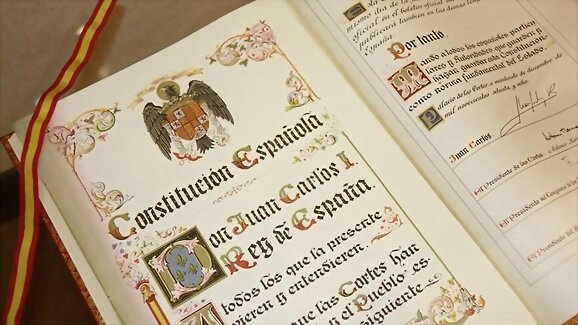 Constitución Española
Don Juan Carlos I
Rey de España.
A todos los que la presente
vieren y entendieren
que las Cortes han
y el Pueblo es-
siguiente
mismo día de la
oficial en el boletín oficial
publicará también en las demás
España.
Por tanto
Mando a todos los españoles particu
lares y Autoridades que guarden y
hagan guardar esta Constitución
como norma fundamental del Estado.
Palacio de las Cortes, a
de diciembre de
mil novecientos setenta y ocho.
Juan Carlos
El Presidente de las Cortes
El Presidente del Congreso de
El Presidente del